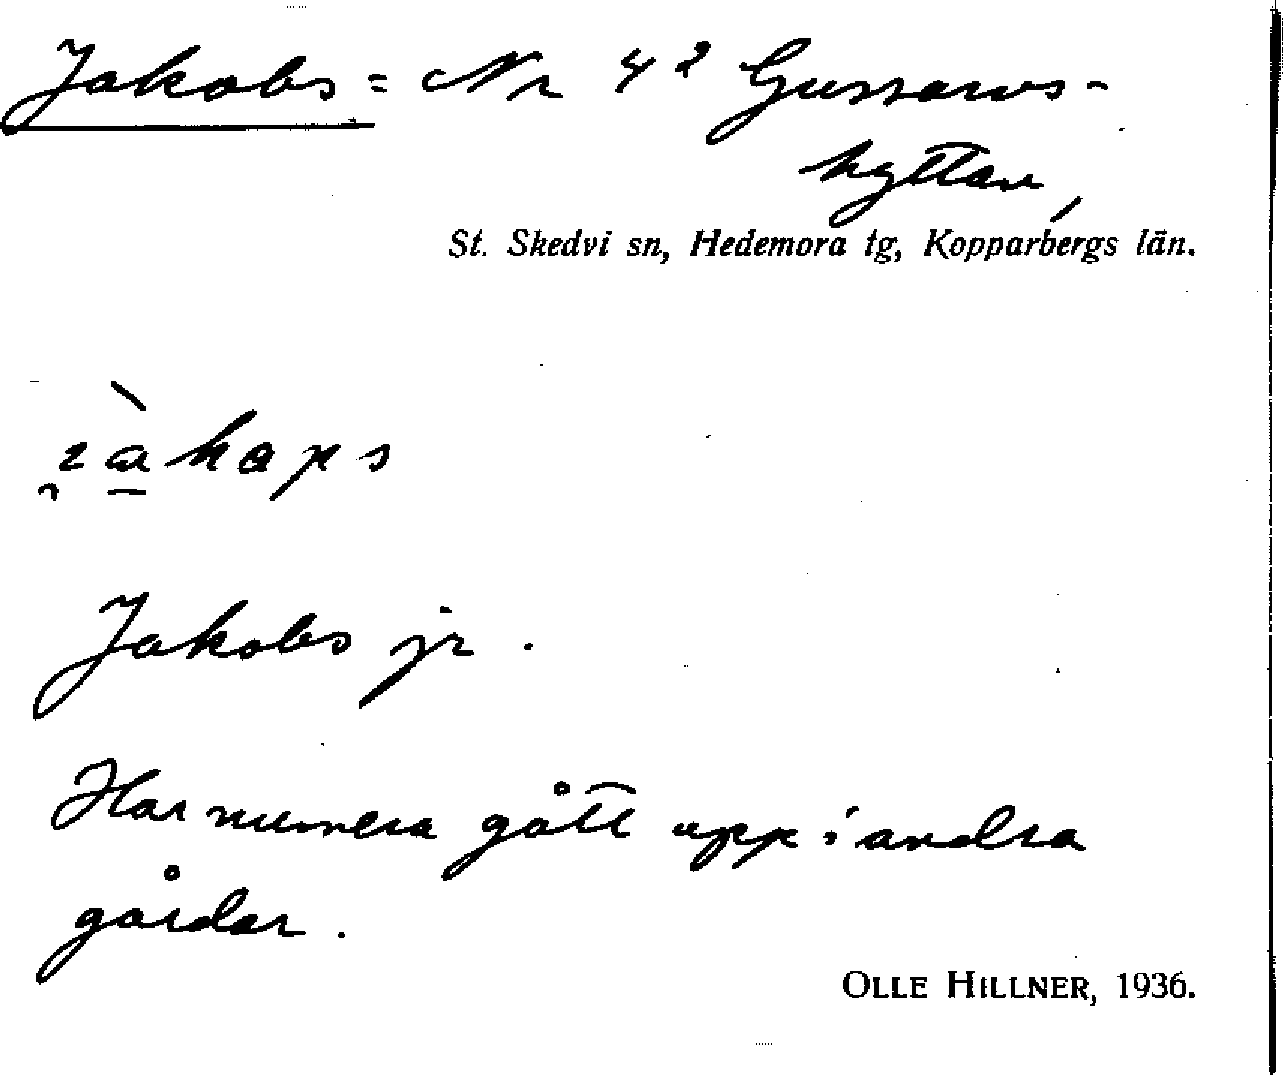 Jakobs = Nr 4² Gussarvs-
hyttan,
St. Skedvi sn, Hedemora tg, Kopparbergs län.
Jakobs jr.
Har numera gått upp i andra
gårdar.
OLLE HILLNER, 1936.